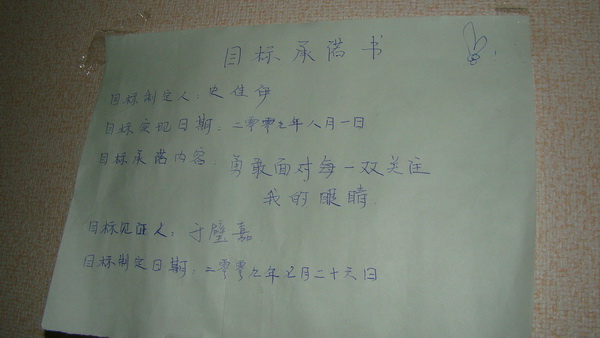 目标承诺书
目标制定人：史佳伊
目标实现日期：二零零九年八月一日
目标承诺内容：勇敢面对每一双关注
我的眼睛
目标见证人：于壁嘉
目标制定日期：二零零九年七月二十六日